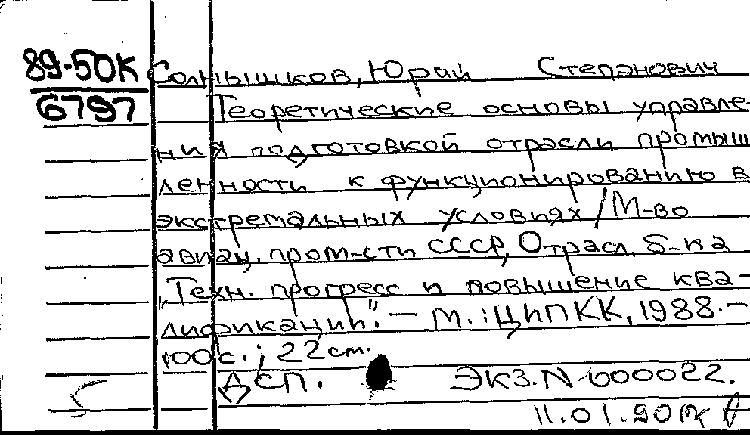 89-50К Солнышков, Юрий Степанович
6797 Теоретические основы управле-
ния подготовкой отрасли промыш
ленности к функционированию в
экстремальных условиях / М-во
авиац. пром-сти СССР, Отрасл. б-ка
"Техн. прогресс и повышение ква-
лификации". - М. : ЦИПКК, 1988. -
100 с. ; 22 см.
ДСП. ЭКЗ. N 000022.
11.01.90